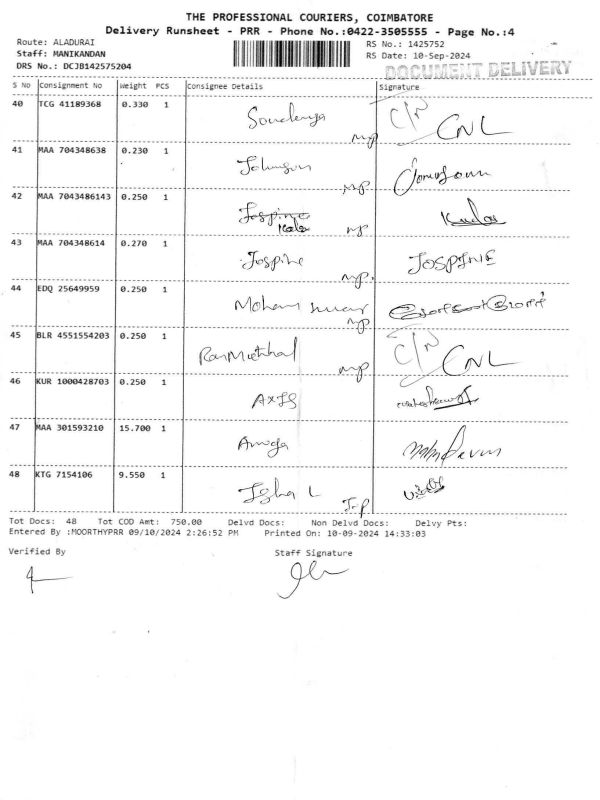 THE PROFESSIONAL COURIERS, COIMBATORE
Delivery Runsheet - PRR - Phone No.:0422-3505555 - Page No.:4
Route: ALADURAI
Staff: MANIKANDAN
DRS No.: DCJB142575204
RS No.: 1425752
RS Date: 10-Sep-2024
DOCUMENT DELIVERY
S No Consignment No Weight PCS Consignee Details Signature
40 TCG 41189368 0.330 1 C/N CNL
mp
41 MAA 704348638 0.230 1 Johnson
mp
42 MAA 7043486143 0.250 1 Jospine
mp
43 MAA 704348614 0.270 1 Jospine JOSPINE
mp.
44 EDQ 25649959 0.250 1 Mohan
mp
45 BLR 4551554203 0.250 1 C/N CNL
mp
46 KUR 1000428703 0.250 1 AXIS
47 MAA 301593210 15.700 1 Amoga
48 KTG 7154106 9.550 1 Isha L
Tot Docs: 48 Tot COD Amt: 750.00 Delvd Docs: Non Delvd Docs: Delvy Pts:
Entered By :MOORTHYPRR 09/10/2024 2:26:52 PM Printed On: 10-09-2024 14:33:03
Verified By Staff Signature